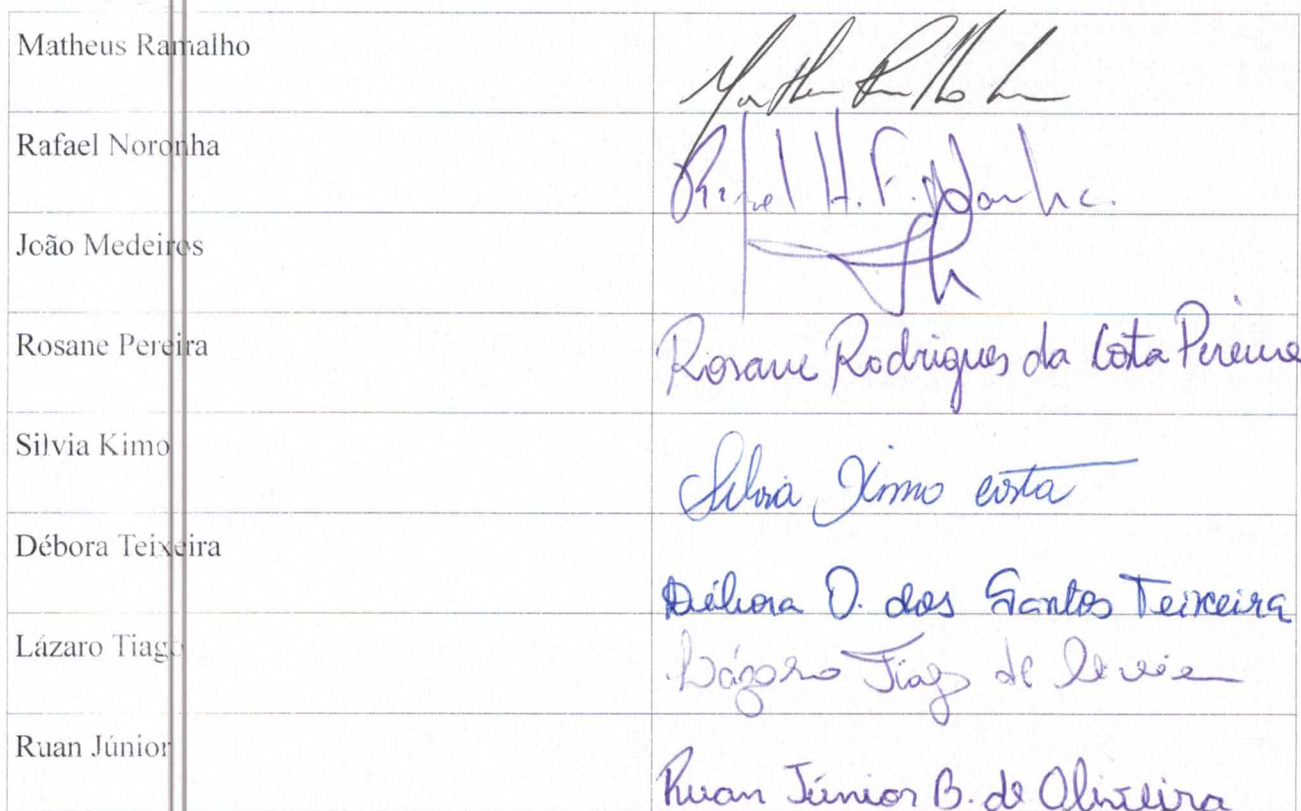 Matheus Ramalho
Rafael Noronha
Rafael H. F. Noronha.
João Medeiros
Rosane Pereira
Rosane Rodrigues da Costa Pereira
Silvia Kimo
Silvia Kimo Costa
Débora Teixeira
Débora O. dos Santos Teixeira
Lázaro Tiago
Lázaro Tiago de
Ruan Júnior
Ruan Júnior B. de Oliveira